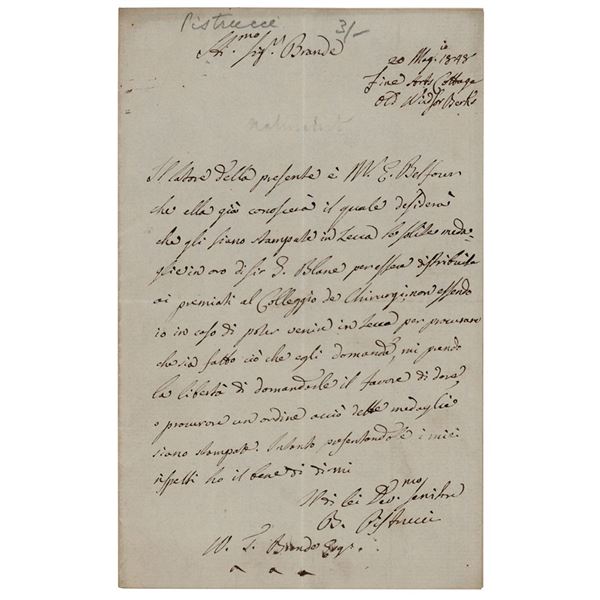 Pistrucci 3/-
Ill.mo Sig.r Brande
20 Mag.io 1848
Fine Arts Cottage
Old Windsor Berks
Il latore della presente è Mr. E. Belfour
che ella già conoscerà il quale desidera
che gli siano stampate in Zecca le solite meda-
glie in oro di Sir G. Blane per essere distribuite
ai premiati al Colleggio de Chirurgi, non essendo
io in caso di poter venir in Zecca per procurare
che sia fatto ciò che egli domanda, mi prendo
la libertà di domanderle il favore di dare,
o procurare un ordine acciò dette medaglie
siano stampate. Intanto presentandole i miei
rispetti ho il bene di dirmi
Di lei Dev.mo servitore
B. Pistrucci
W. T. Brande Esq.r